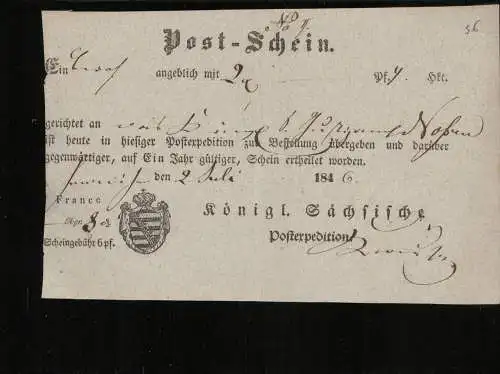 56
No
Post-Schein.
Ein angeblich mit Pf. Hkt.
gerichtet an Nossen
ist heute in hiesiger Postexpedition zur Bestellung übergeben und darüber
gegenwärtiger, auf Ein Jahr gültiger, Schein ertheilet worden.
den 2 Juli 1846.
Franco
Königl. Sächsische
Ngr. 3
Postexpedition
Scheingebühr 6 pf.